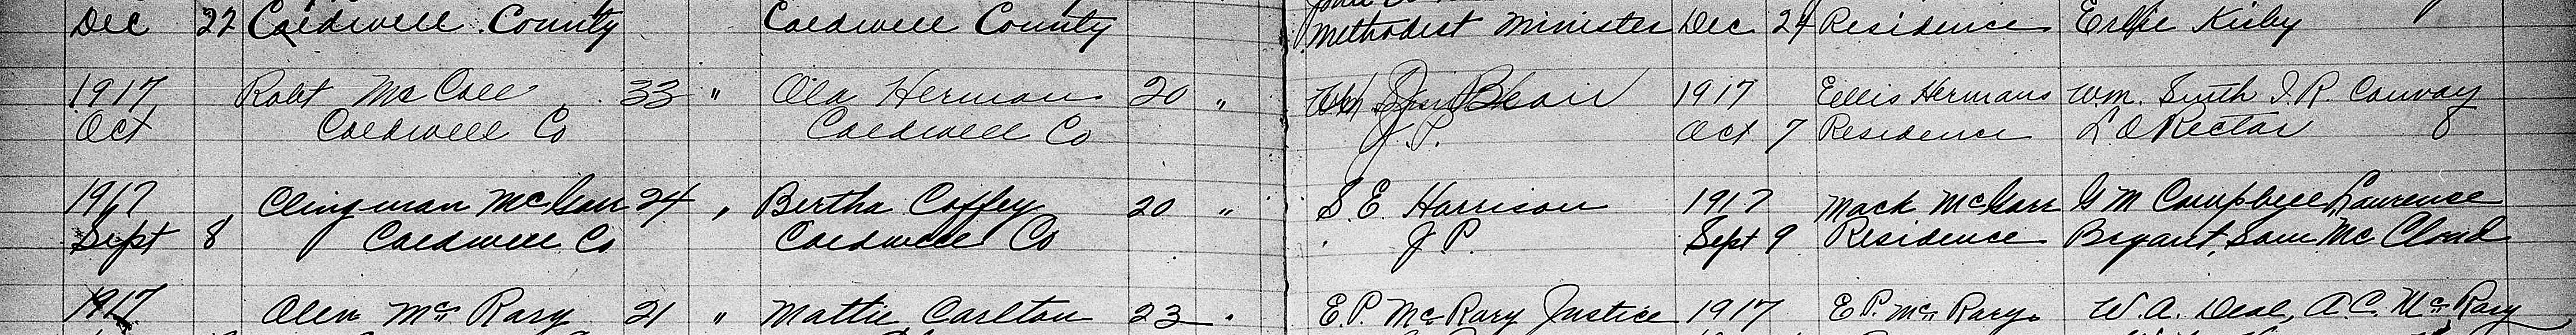 Dec 22 Caldwell County Caldwell County Methodist Minister Dec 24 Residence Kirby
1917 Robt McCall 33 " Ola Herman 20 " Blair 1917 Ellis Hermans Wm. Smith J. R. Conway
Oct Caldwell Co Caldwell Co J. P. Oct 7 Residence L O Rector
1917 Clingman McGarr 24 " Bertha Coffey 20 " S. E. Harrison 1917 Mack McGarr G M Campbell Lawrence
Sept 8 Caldwell Co Caldwell Co J P. Sept 9 Residence Bryant, Sam McCloud
1917 Olen McRary 21 " Mattie Carlton 23 " E. P. McRary Justice 1917 E. P. McRary W. A. Deal, A. C. McRary